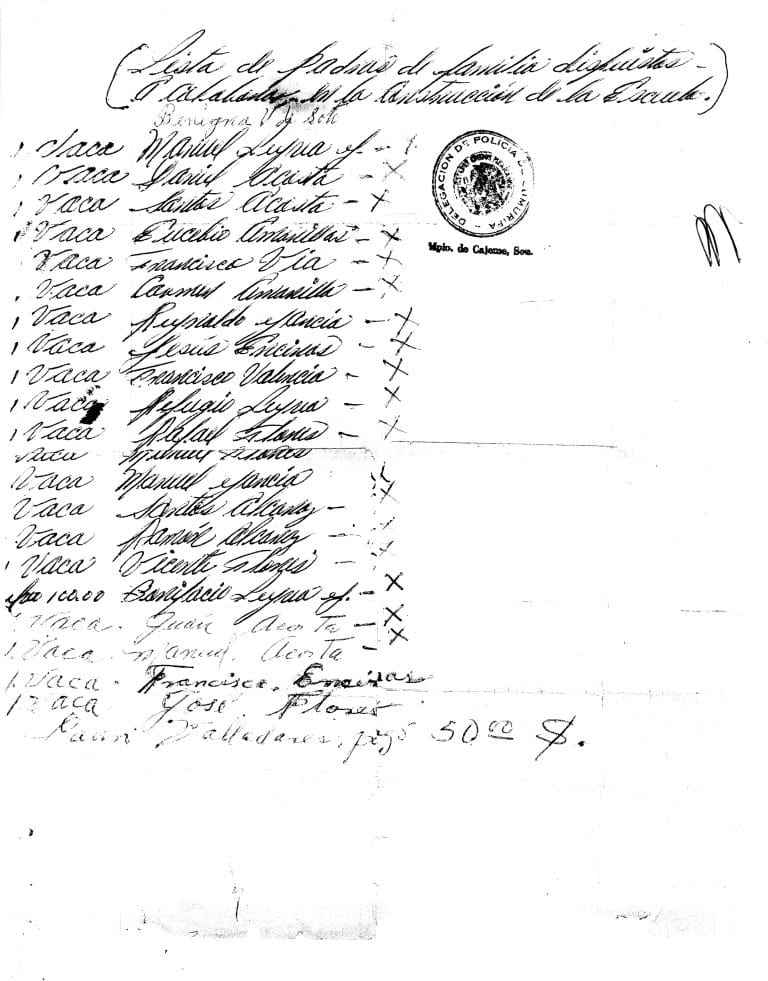 (Lista de padres de familia dispuestos -
a colaborar en la Construcción de la Escuela.)
Benigna V de Soto
1 Vaca Manuel Leyva
1 Vaca Daniel Acosta - X
1 Vaca Santos Acosta - X
DELEGACION DE POLICIA CUMURIPA
Mpio. de Cajeme, Son.
1 Vaca Eucebio Amarillas - X
Vaca Francisco Via - X
Vaca Carmen Amarilla - X
1 Vaca Reynaldo - X
1 Vaca Jesús Encinas - X
1 Vaca Francisco Valencia - X
1 Vaca Refugio Leyva - X
1 Vaca Rafael Flores - X
Vaca Flores
Vaca Manuel
Vaca Santos Alcaraz -
Vaca Ramón Alcaraz -
1 Vaca Vicente Flores -
100.00 Bonifacio Leyva - X
1 Vaca. Juan Acosta - X
1. Vaca. Manuel. Acosta - X
1. Vaca. Francisco. Encinas
1 Vaca José. Flores
Valladares. pagó 50.00 $.